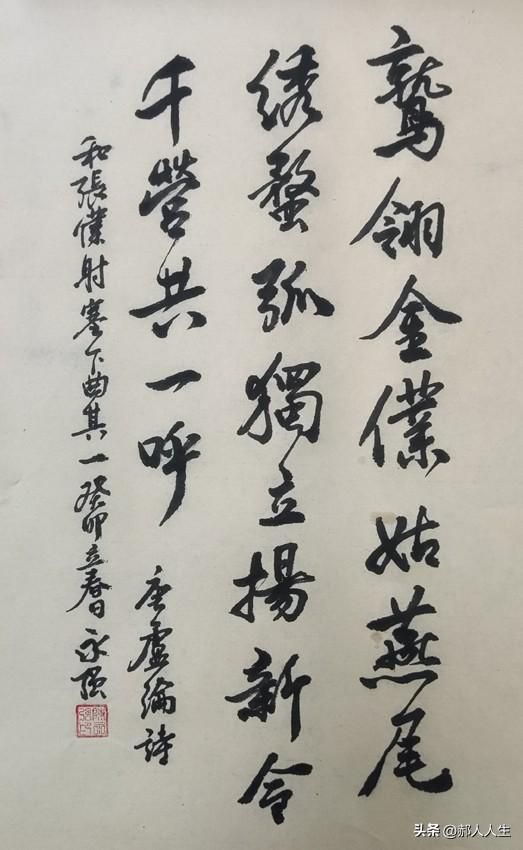 鹫翎金僕姑燕尾
绣蝥弧獨立揚新令
千營共一呼 唐盧綸詩
和張僕射塞下曲其一癸卯立春日永强
头条 @郝人人生